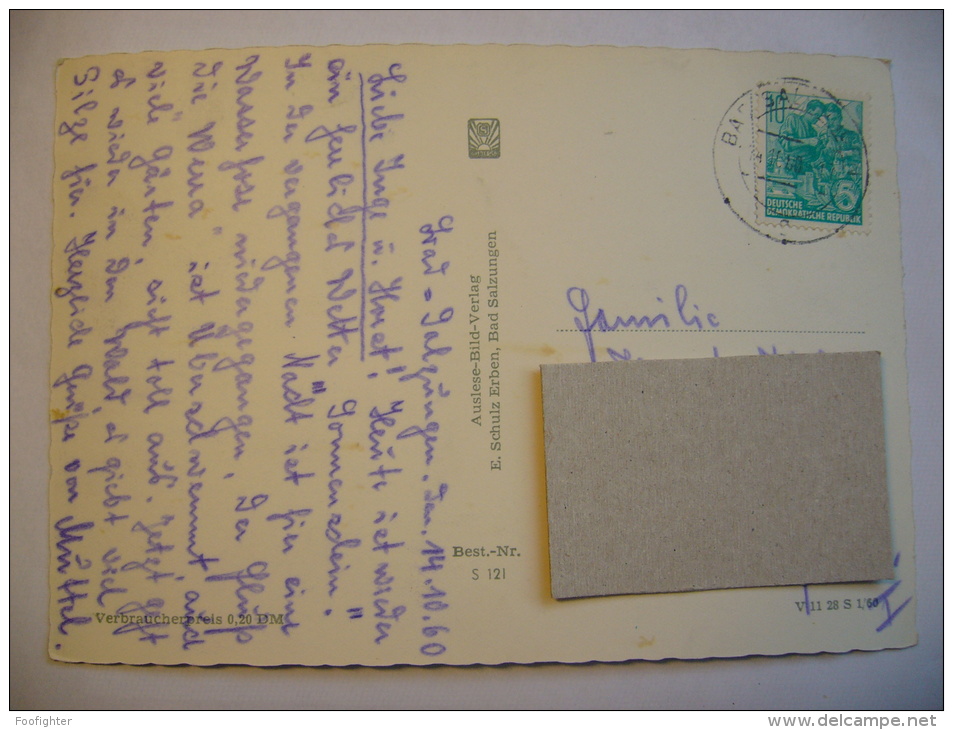 Bad-Salzungen. Den. 14.10.60
Liebe Inge u. Horst! Heute ist wieder
ein herrliches Wetter "Sonnenschein."
In der vergangenen Nacht ist hier eine
Wasserhose niedergegangen, der Fluß
die "Werra" ist überschwemmt, auch
viele Gärten, sieht toll aus. Jetzt geht
es wieder in den Wald, es giebt viel
Pilze hier. Herzliche Grüße von Mutti.
Verbraucherpreis 0,20 DM
Auslese-Bild-Verlag
E. Schulz Erben, Bad Salzungen
Best.-Nr.
S 121
BAD SAL
10
DEUTSCHE
DEMOKRATISCHE REPUBLIK
Familie
V 11 28 S 1/60
Foofighter
www.delcampe.net